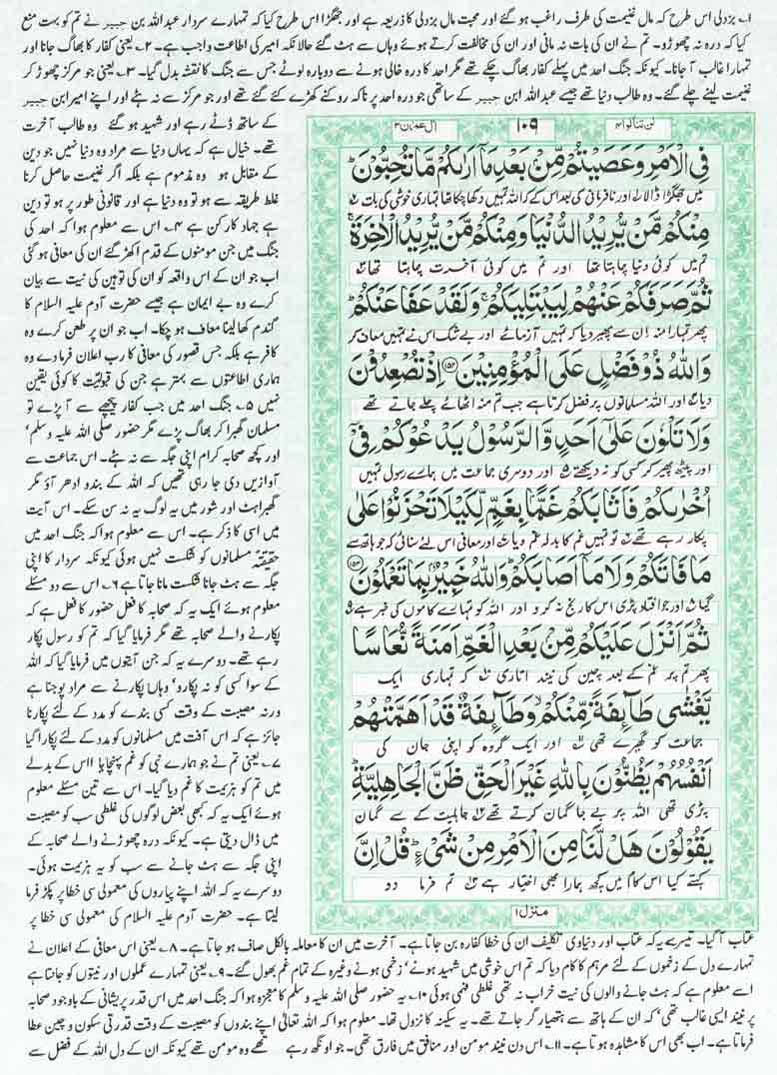 ۱۔ بزدلی اس طرح کہ مال غنیمت کی طرف راغب ہو گئے اور محبت مال بزدلی کا ذریعہ ہے اور جھگڑا اس طرح کیا کہ تمہارے سردار عبداللہ بن جبیر نے تم کو بہت منع
کیا کہ درہ نہ چھوڑو۔ تم نے ان کی بات نہ مانی اور ان کی مخالفت کرتے ہوئے وہاں سے ہٹ گئے حالانکہ امیر کی اطاعت واجب ہے۔ ۲۔ یعنی کفار کا بھاگ جانا اور
تمہارا غالب آ جانا۔ کیونکہ جنگ احد میں پہلے کفار بھاگ چکے تھے مگر احد کا درہ خالی ہونے سے دوبارہ لوٹے جس سے جنگ کا نقشہ بدل گیا۔ ۳۔ یعنی جو مرکز چھوڑ کر
غنیمت لینے چلے گئے۔ وہ طالب دنیا تھے جیسے عبداللہ ابن جبیر کے ساتھی جو درہ احد پر ناکہ روکنے کھڑے کئے گئے تھے اور جو مرکز سے نہ ہٹے اور اپنے امیر ابن جبیر
کے ساتھ ڈٹے رہے اور شہید ہو گئے وہ طالب آخرت
تھے۔ خیال ہے کہ یہاں دنیا سے مراد وہ دنیا نہیں جو دین
کے مقابل ہو وہ مذموم ہے بلکہ اگر غنیمت حاصل کرنا
غلط طریقہ سے ہو تو وہ دنیا ہے اور قانونی طور پر ہو تو دین
ہے جہاد کا رکن ہے ۴۔ اس سے معلوم ہوا کہ احد کی
جنگ میں جن مومنوں کے قدم اکھڑ گئے ان کی معافی ہو گئی
اب جو ان کے اس واقعہ کو ان کی توہین کی نیت سے بیان
کرے وہ بے ایمان ہے جیسے حضرت آدم علیہ السلام کا
گندم کھا لینا معاف ہو چکا۔ اب جو ان پر طعن کرے وہ
کافر ہے بلکہ جس قصور کی معافی کا رب اعلان فرما دے وہ
ہماری اطاعتوں سے بہتر ہے جن کی قبولیت کا کوئی یقین
نہیں ۵۔ جنگ احد میں جب کفار پیچھے سے آ پڑے تو
مسلمان گھبرا کر بھاگ پڑے مگر حضور صلی اللہ علیہ وسلم'
اور کچھ صحابہ کرام اپنی جگہ سے نہ ہٹے۔ اس جماعت سے
آوازیں دی جا رہی تھیں کہ اللہ کے بندو ادھر آؤ مگر
گھبراہٹ اور شور میں یہ لوگ یہ نہ سن سکے۔ اس آیت
میں اسی کا ذکر ہے۔ اس سے معلوم ہوا کہ جنگ احد میں
حقیقتہً مسلمانوں کو شکست نہیں ہوئی کیونکہ سردار کا اپنی
جگہ سے ہٹ جانا شکست مانا جاتا ہے ۶۔ اس سے دو مسئلے
معلوم ہوئے ایک یہ کہ صحابہ کا فعل حضور کا فعل ہے کہ
پکارنے والے صحابہ تھے مگر فرمایا گیا کہ تم کو رسول پکار
رہے تھے۔ دوسرے یہ کہ جن آیتوں میں فرمایا گیا کہ اللہ
کے سوا کسی کو نہ پکارو' وہاں پکارنے سے مراد پوجنا ہے
ورنہ مصیبت کے وقت کسی بندے کو مدد کے لئے پکارنا
جائز ہے کہ اس آفت میں مسلمانوں کو مدد کے لئے پکارا گیا
۷۔ یعنی تم نے جو ہمارے نبی کو غم پہنچایا اس کے بدلے
میں تم کو ہزیمت کا غم دیا گیا۔ اس سے تین مسئلے معلوم
ہوئے ایک یہ کہ کبھی بعض لوگوں کی غلطی سب کو مصیبت
میں ڈال دیتی ہے۔ کیونکہ درہ چھوڑنے والے صحابہ کے
اپنی جگہ سے ہٹ جانے سے سب کو یہ ہزیمت ہوئی۔
دوسرے یہ کہ اللہ اپنے پیاروں کی معمولی سی خطا پر پکڑ فرما
لیتا ہے۔ حضرت آدم علیہ السلام کی معمولی سی خطا پر
لن تنالوا ۴
۱۰۹
ال عمرٰن ۳
فِی الْاَمْرِ وَعَصَیْتُمْ مِّنْۢ بَعْدِ مَاۤ اَرٰىكُمْ مَّا تُحِبُّوْنَؕ
میں جھگڑا ڈالا اور نافرمانی کی بعد اس کے کہ اللہ تمہیں دکھا چکا تھا تمہاری خوشی کی بات
مِنْكُمْ مَّنْ یُّرِیْدُ الدُّنْیَا وَمِنْكُمْ مَّنْ یُّرِیْدُ الْاٰخِرَةَۚ
تم میں کوئی دنیا چاہتا تھا اور تم میں کوئی آخرت چاہتا تھا
ثُمَّ صَرَفَكُمْ عَنْهُمْ لِیَبْتَلِیَكُمْۚ وَلَقَدْ عَفَا عَنْكُمْؕ
پھر تمہارا منہ ان سے پھیر دیا کہ تمہیں آزمائے اور بے شک اس نے تمہیں معاف کر
وَاللّٰهُ ذُوْ فَضْلٍ عَلَی الْمُؤْمِنِیْنَ ۝۱۵۲ اِذْ تُصْعِدُوْنَ
دیا اور اللہ مسلمانوں پر فضل کرتا ہے جب تم منہ اٹھائے چلے جاتے تھے
وَلَا تَلْوٗنَ عَلٰۤی اَحَدٍ وَّالرَّسُوْلُ یَدْعُوْكُمْ فِیْۤ
اور پیٹھ پھیر کر کسی کو نہ دیکھتے اور دوسری جماعت میں ہمارے رسول تمہیں
اُخْرٰىكُمْ فَاَثَابَكُمْ غَمًّۢا بِغَمٍّ لِّكَیْلَا تَحْزَنُوْا عَلٰی
پکار رہے تھے تو تمہیں غم کا بدلہ غم دیا اور معافی اس لئے سنائی کہ جو ہاتھ سے
مَا فَاتَكُمْ وَلَا مَاۤ اَصَابَكُمْؕ وَاللّٰهُ خَبِیْرٌۢ بِمَا تَعْمَلُوْنَ ۝۱۵۳
گیا اور جو افتاد پڑی اس کا رنج نہ کرو اور اللہ کو تمہارے کاموں کی خبر ہے
ثُمَّ اَنْزَلَ عَلَیْكُمْ مِّنْۢ بَعْدِ الْغَمِّ اَمَنَةً نُّعَاسًا
پھر تم پر غم کے بعد چین کی نیند اتاری کہ تمہاری ایک
یَّغْشٰی طَآىِٕفَةً مِّنْكُمْۙ وَطَآىِٕفَةٌ قَدْ اَهَمَّتْهُمْ
جماعت کو گھیرے تھی اور ایک گروہ کو اپنی جان کی
اَنْفُسُهُمْ یَظُنُّوْنَ بِاللّٰهِ غَیْرَ الْحَقِّ ظَنَّ الْجَاهِلِیَّةِؕ
پڑی تھی اللہ پر بے جا گمان کرتے تھے جاہلیت کے سے گمان
یَقُوْلُوْنَ هَلْ لَّنَا مِنَ الْاَمْرِ مِنْ شَیْءٍؕ قُلْ اِنَّ
کہتے کیا اس کام میں کچھ ہمارا بھی اختیار ہے تم فرما دو
منزل ۱
عتاب آ گیا۔ تیسرے یہ کہ عتاب اور دنیاوی تکلیف ان کی خطا کفارہ بن جاتا ہے۔ آخرت میں ان کا معاملہ بالکل صاف ہو جاتا ہے۔ ۸۔ یعنی اس معافی کے اعلان نے
تمہارے دل کے زخموں کے لئے مرہم کا کام دیا کہ تم اس خوشی میں شہید ہونے' زخمی ہونے وغیرہ کے تمام غم بھول گئے۔ ۹۔ یعنی تمہارے عملوں اور نیتوں کو جانتا ہے
اسے معلوم ہے کہ ہٹ جانے والوں کی نیت خراب نہ تھی غلطی فہمی ہوئی ۱۰۔ یہ حضور صلی اللہ علیہ وسلم کا معجزہ ہوا کہ جنگ احد میں اس قدر پریشانی کے باوجود صحابہ
پر نیند ایسی غالب تھی' کہ ان کے ہاتھ سے ہتھیار گر جاتے تھے۔ یہ سکینہ کا نزول تھا۔ معلوم ہوا کہ اللہ تعالیٰ اپنے بندوں کو مصیبت کے وقت قدرتی سکون و چین عطا
فرماتا ہے۔ اب بھی اس کا مشاہدہ ہوتا ہے۔ ۱۱۔ اس دن نیند مومن اور منافق میں فارق تھی۔ جو اونگھ رہے تھے وہ مومن تھے کیونکہ ان کے دل اللہ کے فضل سے